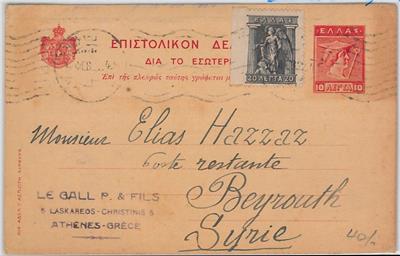 ΕΠΙΣΤΟΛΙΚΟΝ ΔΕ
ΔΙΑ ΤΟ ΕΣΩΤΕΡ
Ἐπὶ τῆς πλευρᾶς ταύτης γράφεται μ
ΕΛΛΑΣ
20 ΛΕΠΤΑ 20
ΕΛΛΑΣ
10 ΛΕΠΤΑ 10
Monsieur Elias Hazzaz
poste restante
Beyrouth
Syrie
LE GALL P. & FILS
5 LASKAREOS - CHRISTINIS 5
ATHÈNES - GRÈCE
40/-